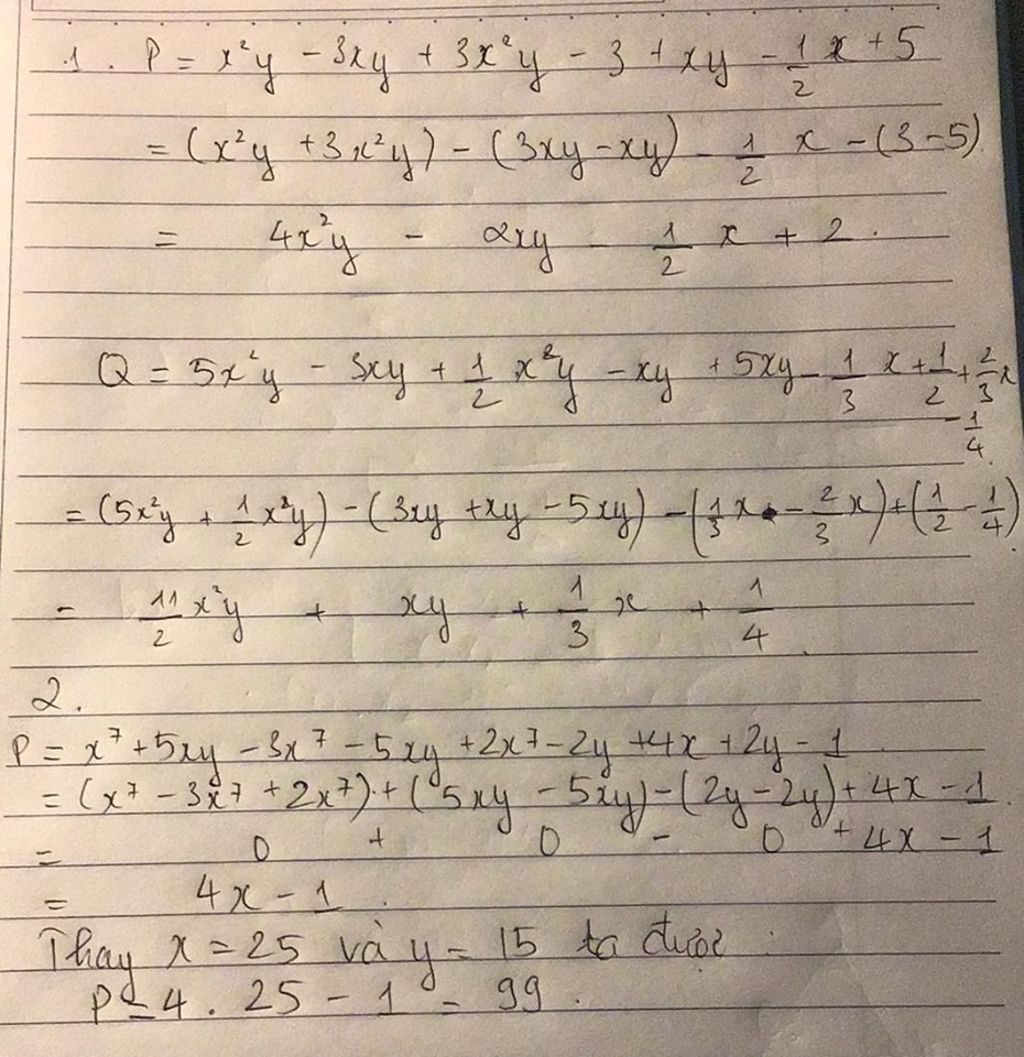 1. P = x²y - 3xy + 3x²y - 3 + xy - 1/2 x + 5
= (x²y + 3x²y) - (3xy - xy) - 1/2 x - (3 - 5)
= 4x²y - 2xy - 1/2 x + 2.
Q = 5x²y - 3xy + 1/2 x²y - xy + 5xy - 1/3 x + 1/2 + 2/3 x
- 1/4.
= (5x²y + 1/2 x²y) - (3xy + xy - 5xy) - (1/3 x - 2/3 x) + (1/2 - 1/4)
= 11/2 x²y + xy + 1/3 x + 1/4.
2.
P = x⁷ + 5xy - 3x⁷ - 5xy + 2x⁷ - 2y + 4x + 2y - 1
= (x⁷ - 3x⁷ + 2x⁷) + (5xy - 5xy) - (2y - 2y) + 4x - 1.
= 0 + 0 - 0 + 4x - 1
= 4x - 1.
Thay x = 25 và y = 15 ta được :
P = 4 . 25 - 1 = 99.